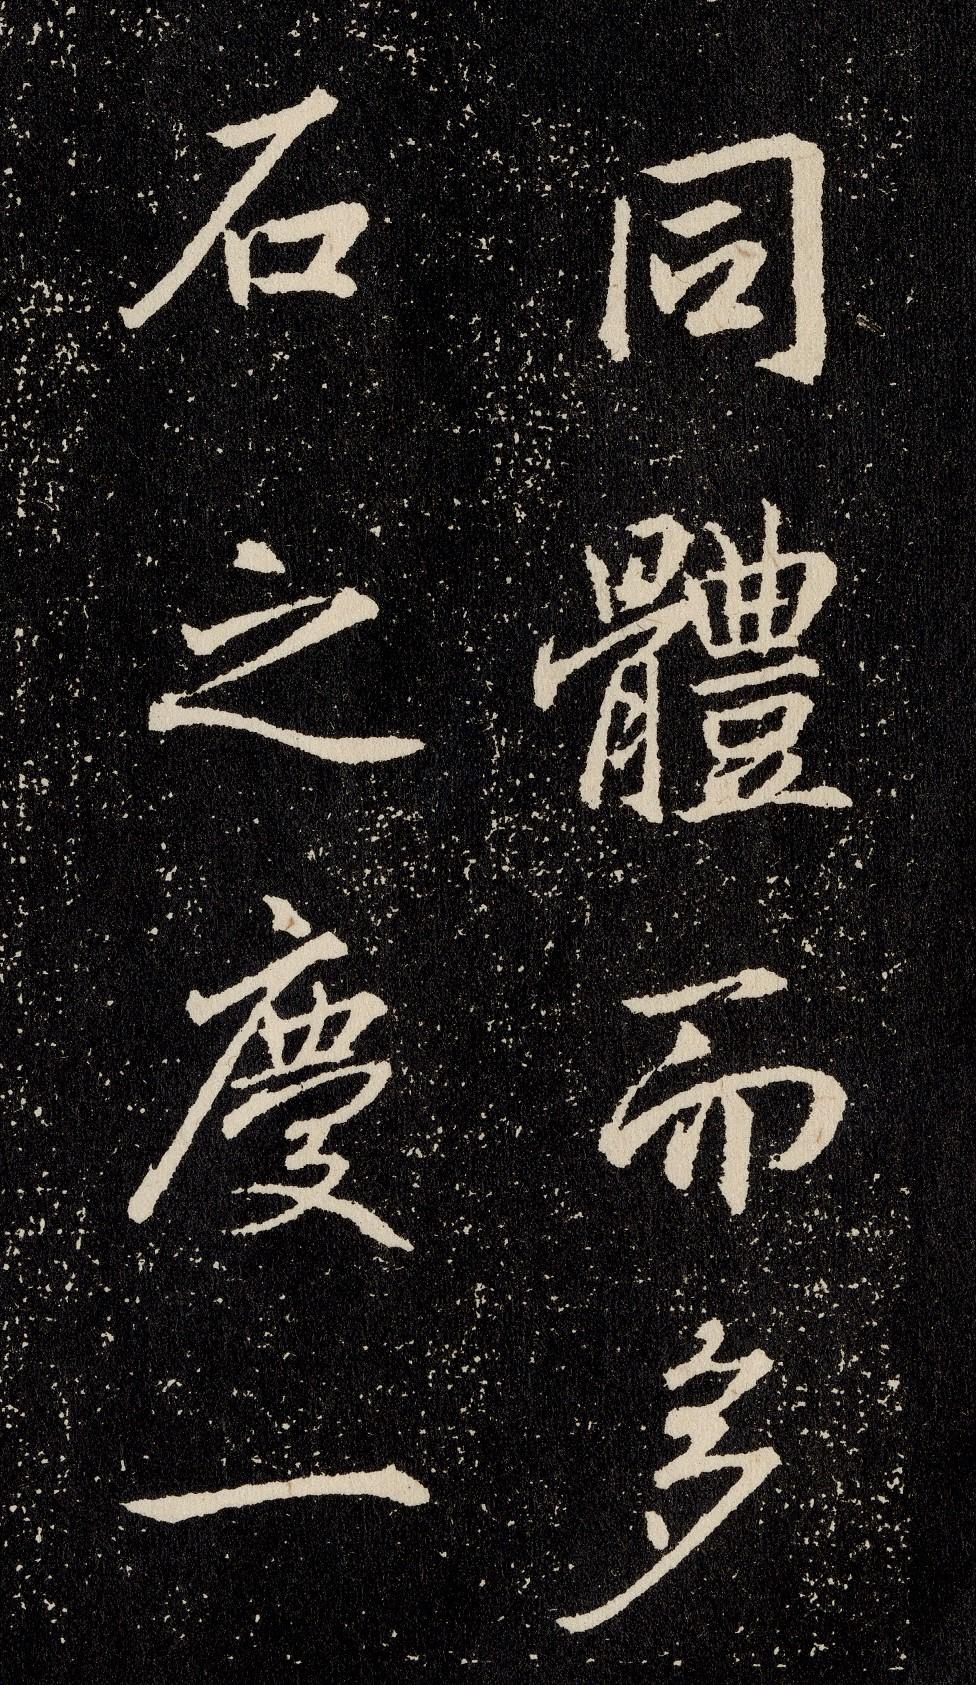 同體而多
石之慶一